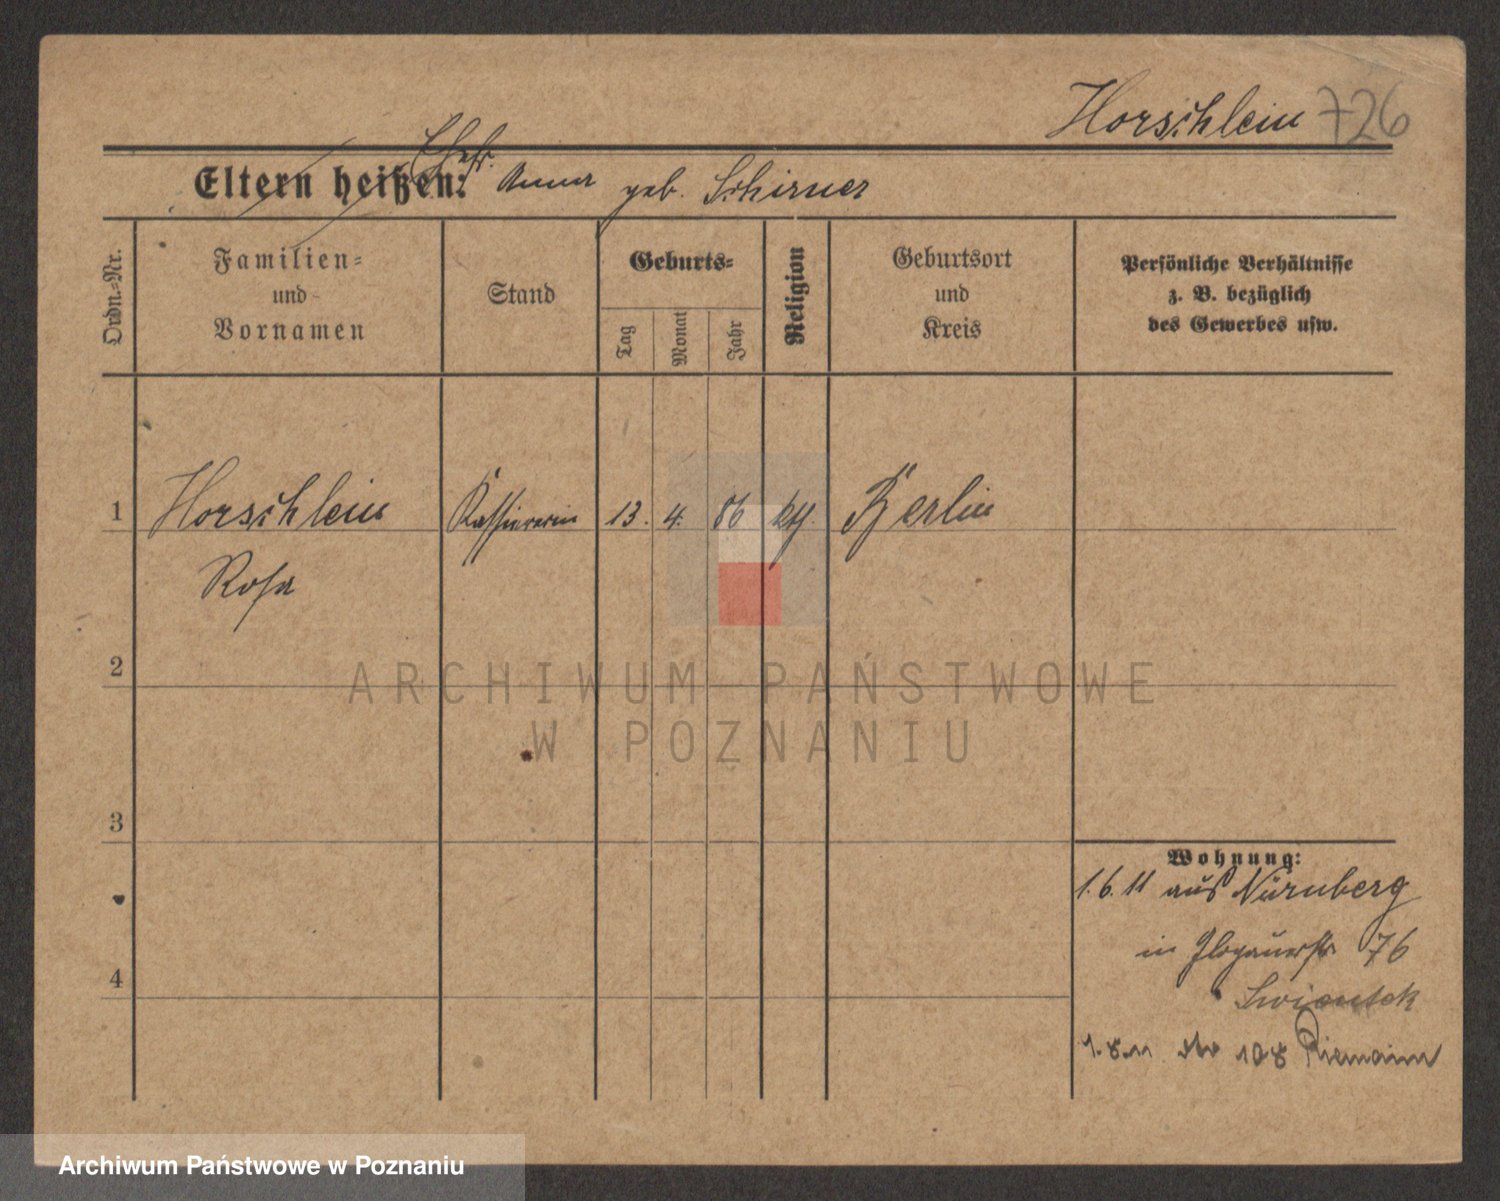 Horschlein 726
Eltern heißen: Ehefr. Anna geb. Schirner
Ordn.-Nr.
Familien-
und
Vornamen
Stand
Geburts-
Tag
Monat
Jahr
Religion
Geburtsort
und
Kreis
Persönliche Verhältnisse
z. B. bezüglich
des Gewerbes usw.
1 Horschlein Kassiererin 13. 4. 86 kth. Berlin
Rosa
2
ARCHIWUM PAŃSTWOWE
W POZNANIU
3
Wohnung:
1.6.11 aus Nürnberg
in Glogauerstr 76
4
Swiontek
1.8.11 108 Riemann
Archiwum Państwowe w Poznaniu